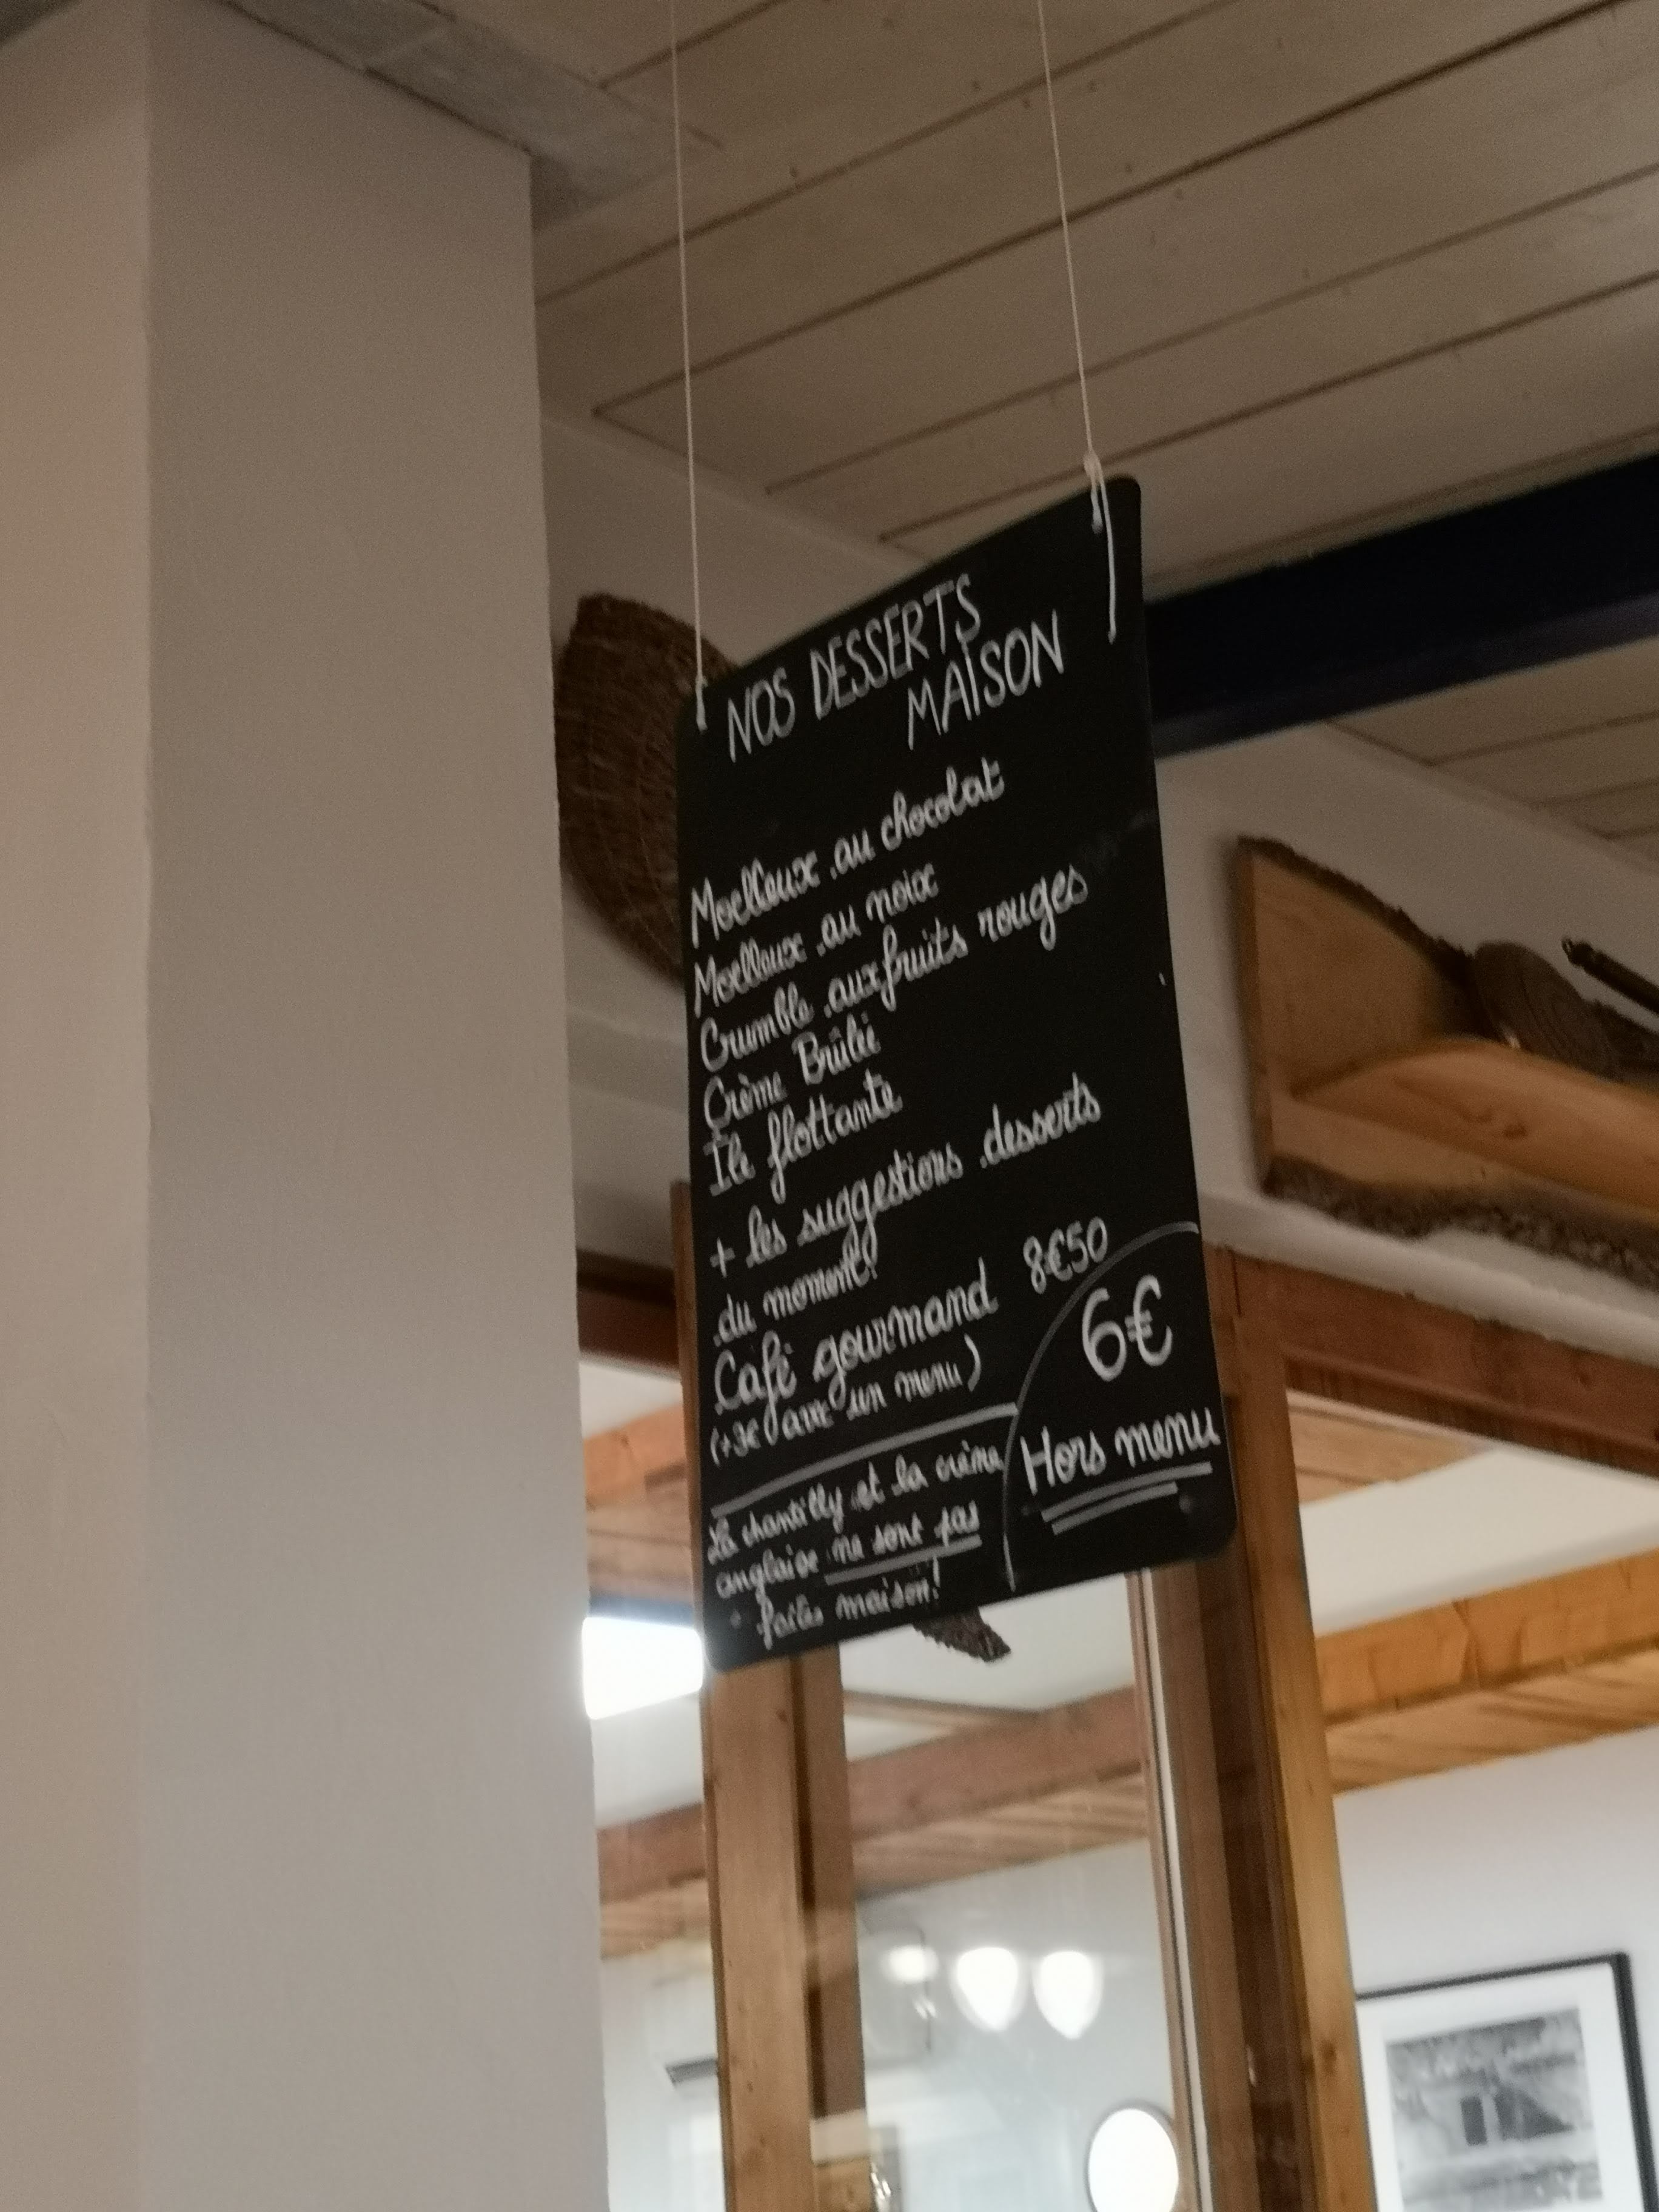 NOS DESSERTS
MAISON
Moelleux au chocolat
Moelleux au noix
Crumble aux fruits rouges
Crème Brûlée
Île flottante
+ les suggestions desserts
du moment!
Café gourmand 8€50
(+3€ avec un menu)
6€
Hors menu
La chantilly et la crème
anglaise ne sont pas
faites maison!